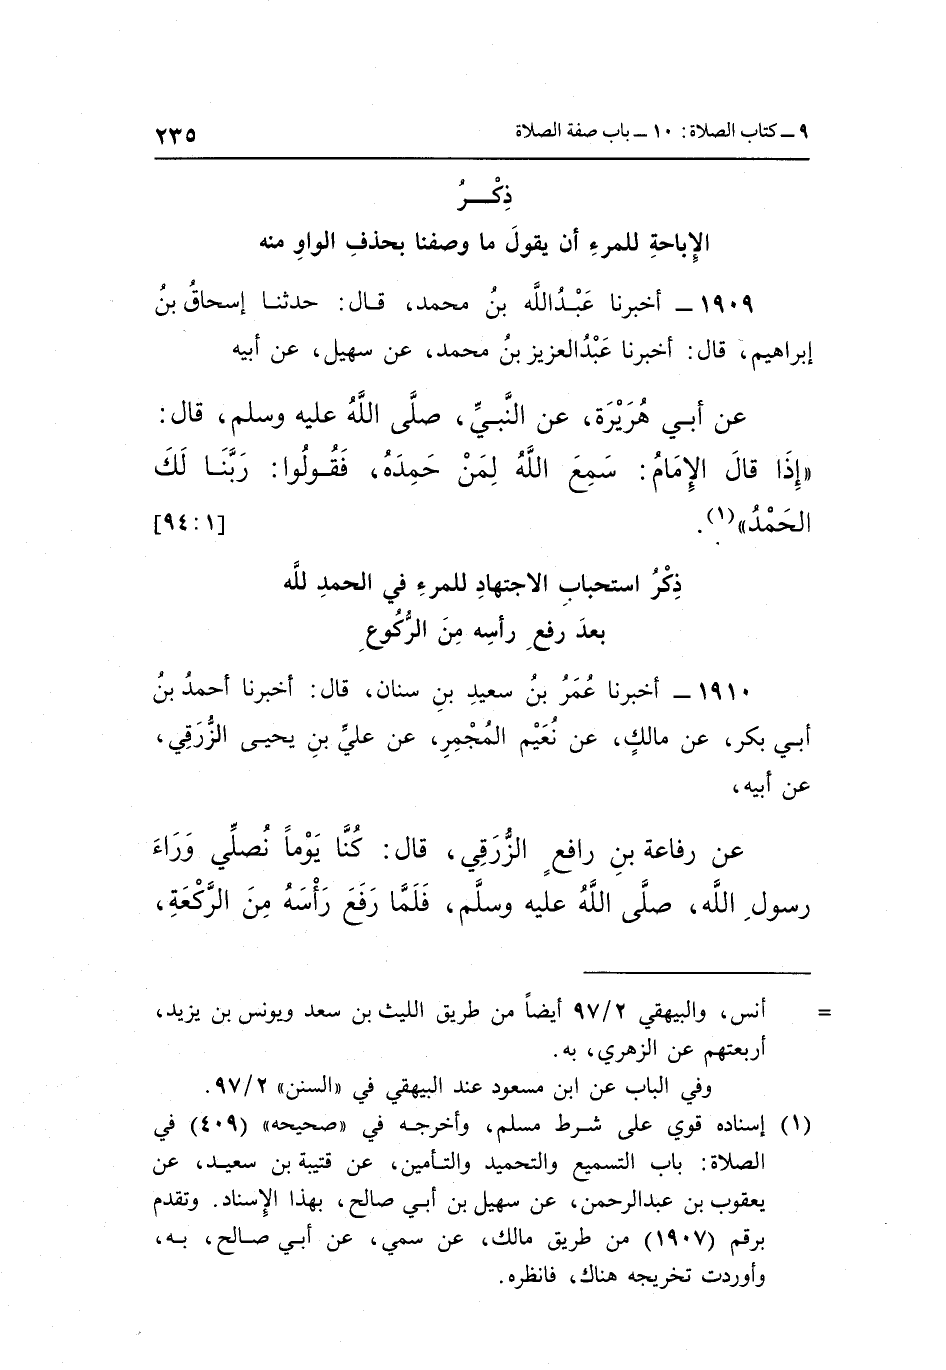 ٩ ــ كتاب الصلاة: ١٠ ــ باب صفة الصلاة ٢٣٥
ذِكْــرُ
الإِباحةِ للمرءِ أن يقولَ ما وصفنا بحذفِ الواوِ منه
١٩٠٩ ــ أخبرنا عَبْـدُاللَّه بنُ محمد، قـال: حدثنـا إسحاقُ بنُ
إبراهيم، قال: أخبرنا عَبْدُالعزيز بنُ محمد، عن سهيل، عن أبيه
عن أبـي هُرَيْرَة، عن النَّبـيِّ، صلَّى اللَّهُ عليه وسلم، قال:
«إِذَا قالَ الإِمَامُ: سَمِعَ اللَّهُ لِمَنْ حَمِدَهُ، فَقُـولُوا: رَبَّنَـا لَكَ
الحَمْدُ»(١). [١ :٩٤]
ذِكْرُ استحبابِ الاجتهادِ للمرءِ في الحمدِ للَّه
بعدَ رفعِ رأسِه مِنَ الرُّكُوعِ
١٩١٠ ــ أخبرنا عُمَرُ بنُ سعيدِ بنِ سنان، قال: أخبرنا أحمدُ بنُ
أبـي بكر، عن مالكٍ، عن نُعَيْم المُجْمِرِ، عن عليِّ بنِ يحيـى الزُّرَقِي،
عن أبيه،
عن رفاعة بنِ رافعٍ الزُّرَقِي، قال: كُنَّا يَوْماً نُصلِّي وَرَاءَ
رسولِ اللَّه، صلَّى اللَّهُ عليه وسلَّم، فَلَمَّا رَفَعَ رَأْسَهُ مِنَ الرَّكْعَةِ،
= أنس، والبيهقي ٩٧/٢ أيضاً من طريق الليث بن سعد ويونس بن يزيد،
أربعتهم عن الزهري، به.
وفي الباب عن ابن مسعود عند البيهقي في «السنن» ٩٧/٢.
(١) إسناده قوي على شرط مسلم، وأخرجـه في «صحيحه» (٤٠٩) في
الصلاة: باب التسميع والتحميد والتـأمين، عن قتيبة بن سعيـد، عن
يعقوب بن عبدالرحمن، عن سهيل بن أبـي صالح، بهذا الإِسناد. وتقدم
برقم (١٩٠٧) من طريق مالك، عن سمي، عن أبـي صـالح، بـه،
وأوردت تخريجه هناك، فانظره.